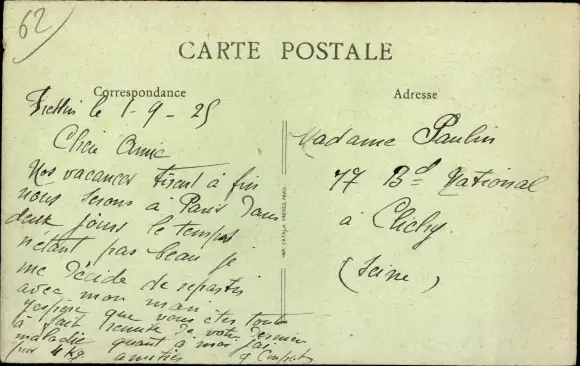 62
CARTE POSTALE
Correspondance
le 1-9-25
Chère Amie
Nos vacances tirent à fin
nous serons à Paris dans
deux jours le temps
n'étant pas beau je
me décide de repartir
avec mon mari
J'espère que vous êtes toute
à fait remise de votre dernière
maladie quant à moi j'ai
pris 4 kg amitiés
Adresse
Madame Paulin
77 Bd National
à Clichy
(Seine)
IMP. CATALA FRERES, PARIS